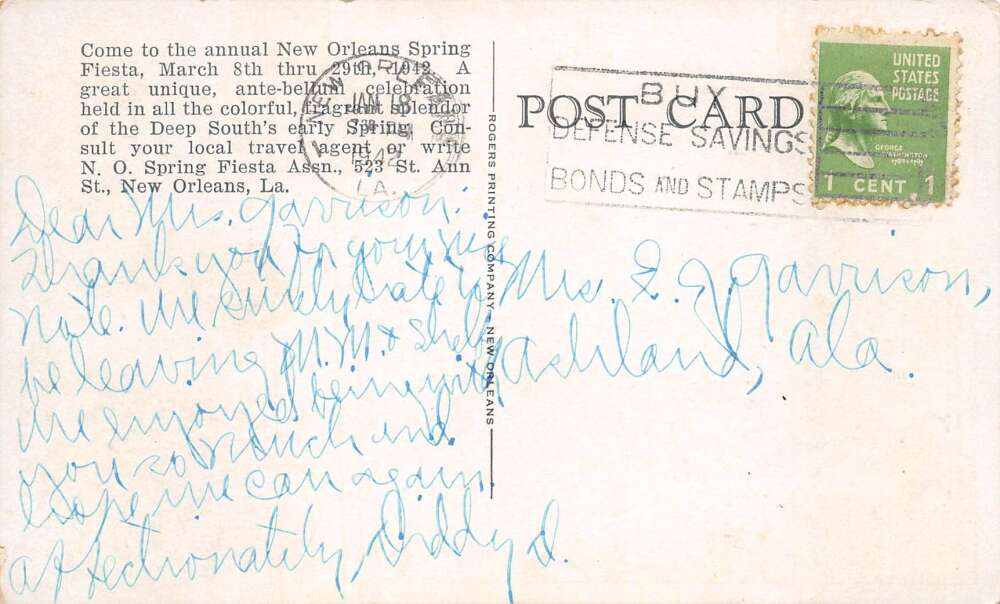 Come to the annual New Orleans Spring
Fiesta, March 8th thru 29th, 1942. A
great unique, ante-bellum celebration
held in all the colorful, fragrant splendor
of the Deep South's early Spring. Con-
sult your local travel agent or write
N. O. Spring Fiesta Assn., 523 St. Ann
St., New Orleans, La.
NEW ORLEANS
JAN 8
1942
LA.
POST CARD
BUY
DEFENSE SAVINGS
BONDS AND STAMPS
UNITED
STATES
POSTAGE
GEORGE
WASHINGTON
1 CENT 1
ROGERS PRINTING COMPANY - NEW ORLEANS
Dear Mrs. Garrison.
Thank you for your nice
note. We surely hate to
be leaving M.M. &
we enjoyed being with
you so much and
hope we can again.
affectionately
Mrs. E. J. Garrison,
Ashland, Ala.